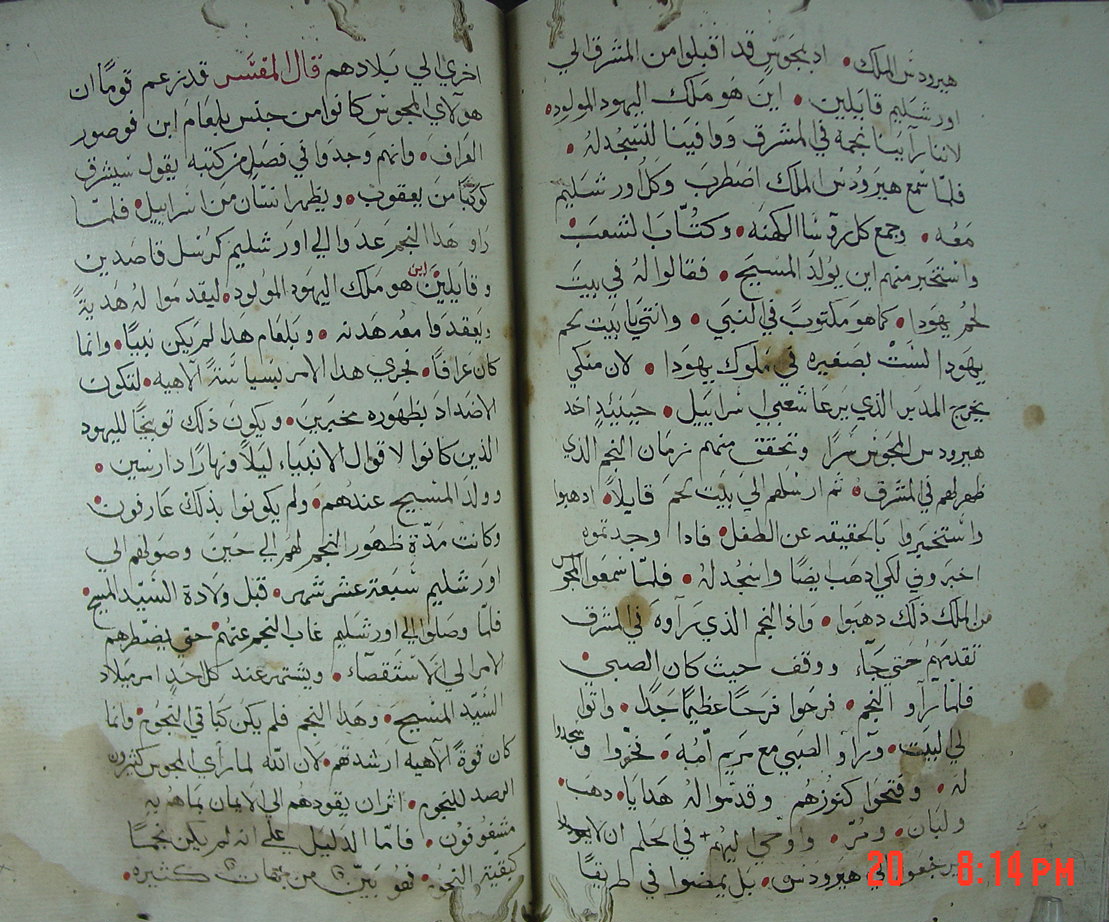 هيرودس الملك • اد بمجوس قد اقبلوا من المشرق الي
اورشليم قايلين • اين هو ملك اليهود المولود •
لاننا رآينا نجمه في المشرق ووافينا لنسجد له •
فلما سمع هيرودس الملك اضطرب وكل اورشليم
معه • وجمع كل روسا الكهنه • وكتاب الشعب
واستخبر منهم اين يولد المسيح • فقالوا له في بيت
لحم يهودا • كما هو مكتوب في النبي • وانتي يا بيت لحم
يهودا لست بصغيره في ملوك يهودا • لان منكي
يخرج المدبر الذي يرعا شعبي اسراييل • حينيذٍ اخد
هيرودس المجوس سرا وتحقق منهم زمان النجم الذي
ظهر لهم في المشرق • تم ارسلهم الي بيت لحم قايلاً • ادهبوا
واستخبروا بالحقيقه عن الطفل • فادا وجدتموه
اخبروني لكي ادهب ايضا واسجد له • فلما سمعوا المجوس
من الملك ذلك دهبوا • واذا النجم الذي رآوه في المشرق
تقدمهم حتي جآء ووقف حيث كان الصبي •
فلما رآو النجم • فرحوا فرحا عظيما جدا • واتوا
الي البيت • ورآو الصبي مع مريم امه • فخروا وسجدوا
له • وفتحوا كنوزهم وقدموا له هدايا • دهب •
ولبان • ومر • واوحي اليهم في الحلم ان لا
يرجعوا الي هيرودس • بل يمضوا في طريقا
اخري الي بلادهم قال المفسر قد زعم قوما ان
هولاي المجوس كانوا من جنس بلعام ابن فوصور
العراف • وانهم وجدوا في فصل من كتبه يقول سيشرق
كوكبا من يعقوب • ويظهر انسان من اسراييل • فلما
راو هدا النجم غدوا الي اورشليم كرسل قاصدين
وقايلين اين هو ملك اليهود المولود • ليقدموا له هدية
ويعقدوا معه هدنه • وبلعام هدا لم يكن نبيا • وانما
كان عرافا • فجري هدا الامر بسياسة آلاهيه • لتكون
الاضداد بظهوره مخبرين • ويكون ذلك توبيخا لليهود
الذين كانوا لاقوال الانبياء ليلاً ونهارًا دارسين •
وولد المسيح عندهم • ولم يكونوا بذلك عارفون •
وكانت مدة ظهور النجم لهم الي حين وصولهم الي
اورشليم سبعة عشر شهر • قبل ولادة السيد المسيح •
فلما وصلوا الي اورشليم غاب النجم عنهم • حتي يضطرهم
الامر الي الاستقصآء • ويشتهر عند كل احد امر ميلاد
السيد المسيح • وهدا النجم فلم يكن كباقي النجوم • وانما
كان قوة آلاهيه ارشدتهم • لان الله لما رأي المجوس كثيرون
الرصد للنجوم • اثر ان يقودهم الي الايمان بما هم به
مشغوفون • فاما الدليل علي انه لم يكن نجمًا
كبقية النجوم • فهو بين من جهات كثيره •
20 8:14 PM